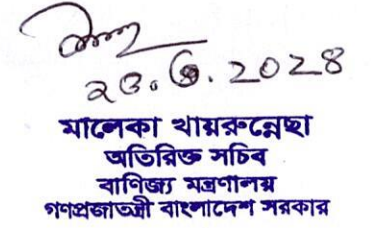 ২৩.৬.২০২৪
মালেকা খায়রুন্নেছা
অতিরিক্ত সচিব
বাণিজ্য মন্ত্রণালয়
গণপ্রজাতন্ত্রী বাংলাদেশ সরকার